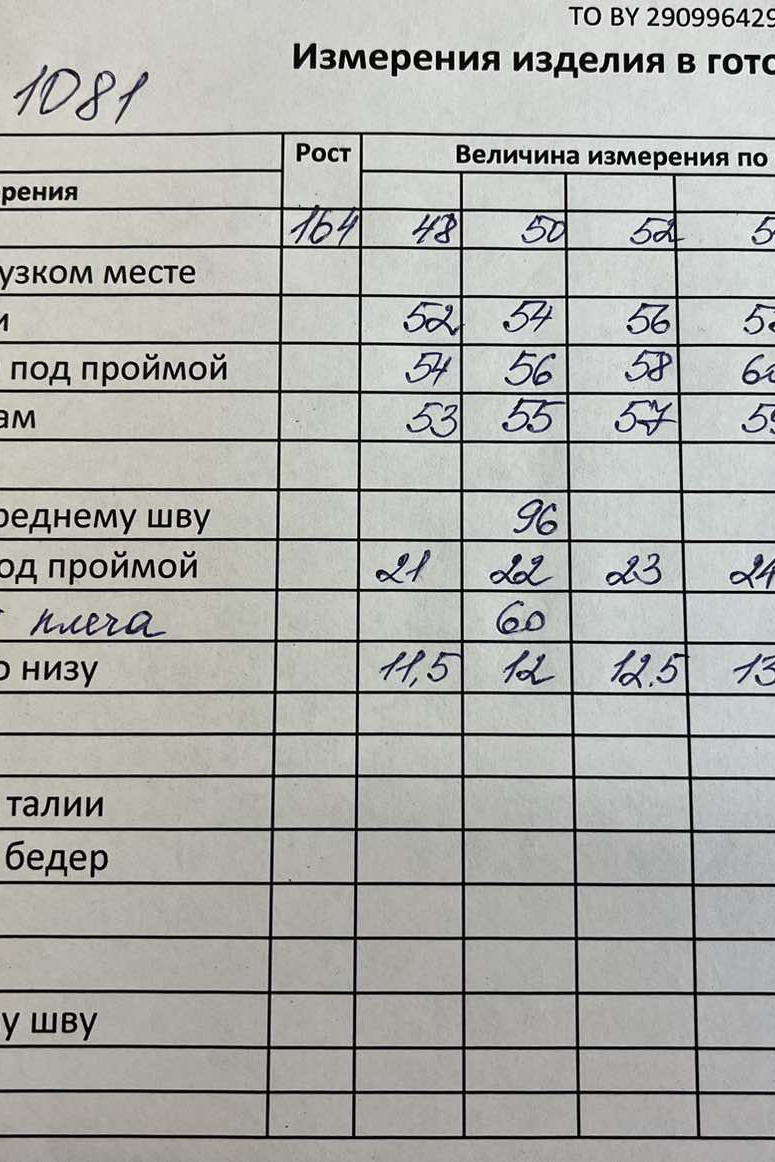 ТО BY 290996429
Измерения изделия в гото
1081
Рост Величина измерения по
рения
164 48 50 52 5
узком месте
и 52 54 56 5
под проймой 54 56 58 6
ам 53 55 57 5
реднему шву 96
од проймой 21 22 23 24
плеча 60
о низу 11,5 12 12.5 13
талии
бедер
у шву